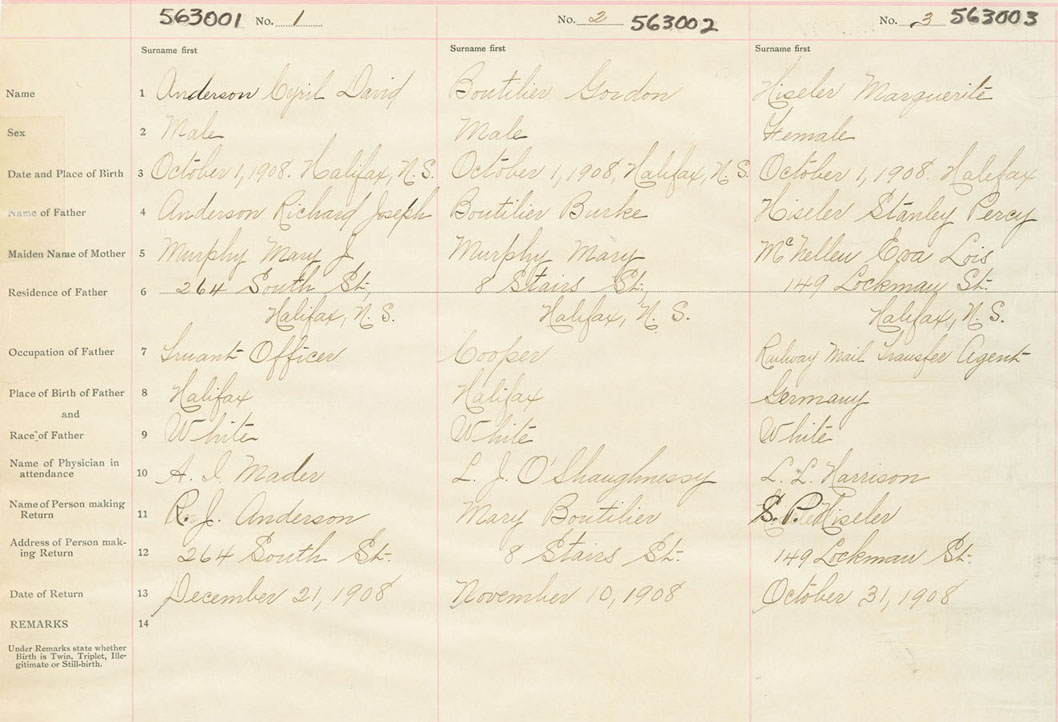 563001 No. 1 No. 2 563002 No. 3 563003
Surname first Surname first Surname first
Name 1 Anderson Cyril David Boutilier Gordon Hiseler Marguerite
Sex 2 Male Male Female
Date and Place of Birth 3 October 1, 1908. Halifax, N.S. October 1, 1908, Halifax, N.S. October 1, 1908. Halifax
Name of Father 4 Anderson Richard Joseph Boutilier Burke Hiseler Stanley Percy
Maiden Name of Mother 5 Murphy Mary J Murphy Mary McKellen Eva Lois
Residence of Father 6 264 South St., 8 Stairs St., 149 Lockman St.
Halifax, N.S. Halifax, N.S. Halifax, N.S.
Occupation of Father 7 Truant Officer Cooper Railway Mail Transfer Agent
Place of Birth of Father 8 Halifax Halifax Germany
and
Race of Father 9 White White White
Name of Physician in
attendance 10 A. I. Mader L. J. O'Shaughnessy L. L. Harrison
Name of Person making
Return 11 R. J. Anderson Mary Boutilier S. P. Hiseler
Address of Person mak-
ing Return 12 264 South St. 8 Stairs St. 149 Lockman St.
Date of Return 13 December 21, 1908 November 10, 1908 October 31, 1908
REMARKS 14
Under Remarks state whether
Birth is Twin, Triplet, Ille-
gitimate or Still-birth.